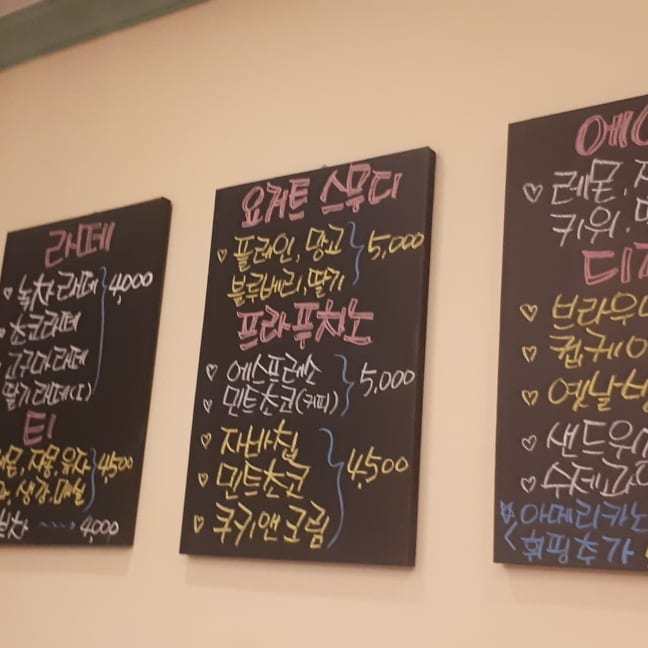 라떼
녹차라떼 4,000
초코라떼
고구마라떼
딸기라떼(I)
티
자몽, 유자 4,500
생강, 매실
4,000
요거트 스무디
플레인, 망고 5,000
블루베리, 딸기
프라푸치노
에스프레소 5,000
민트초코(커피)
자바칩
민트초코 4,500
쿠키앤크림
레몬,
키위,
브라우니
컵케이
옛날
샌드위
수제
아메리카노
휘핑추가